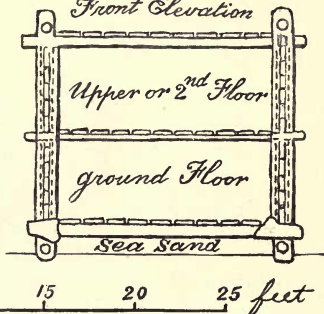 Front Elevation
Upper or 2nd Floor
ground Floor
Sea Sand
15 20 25 feet